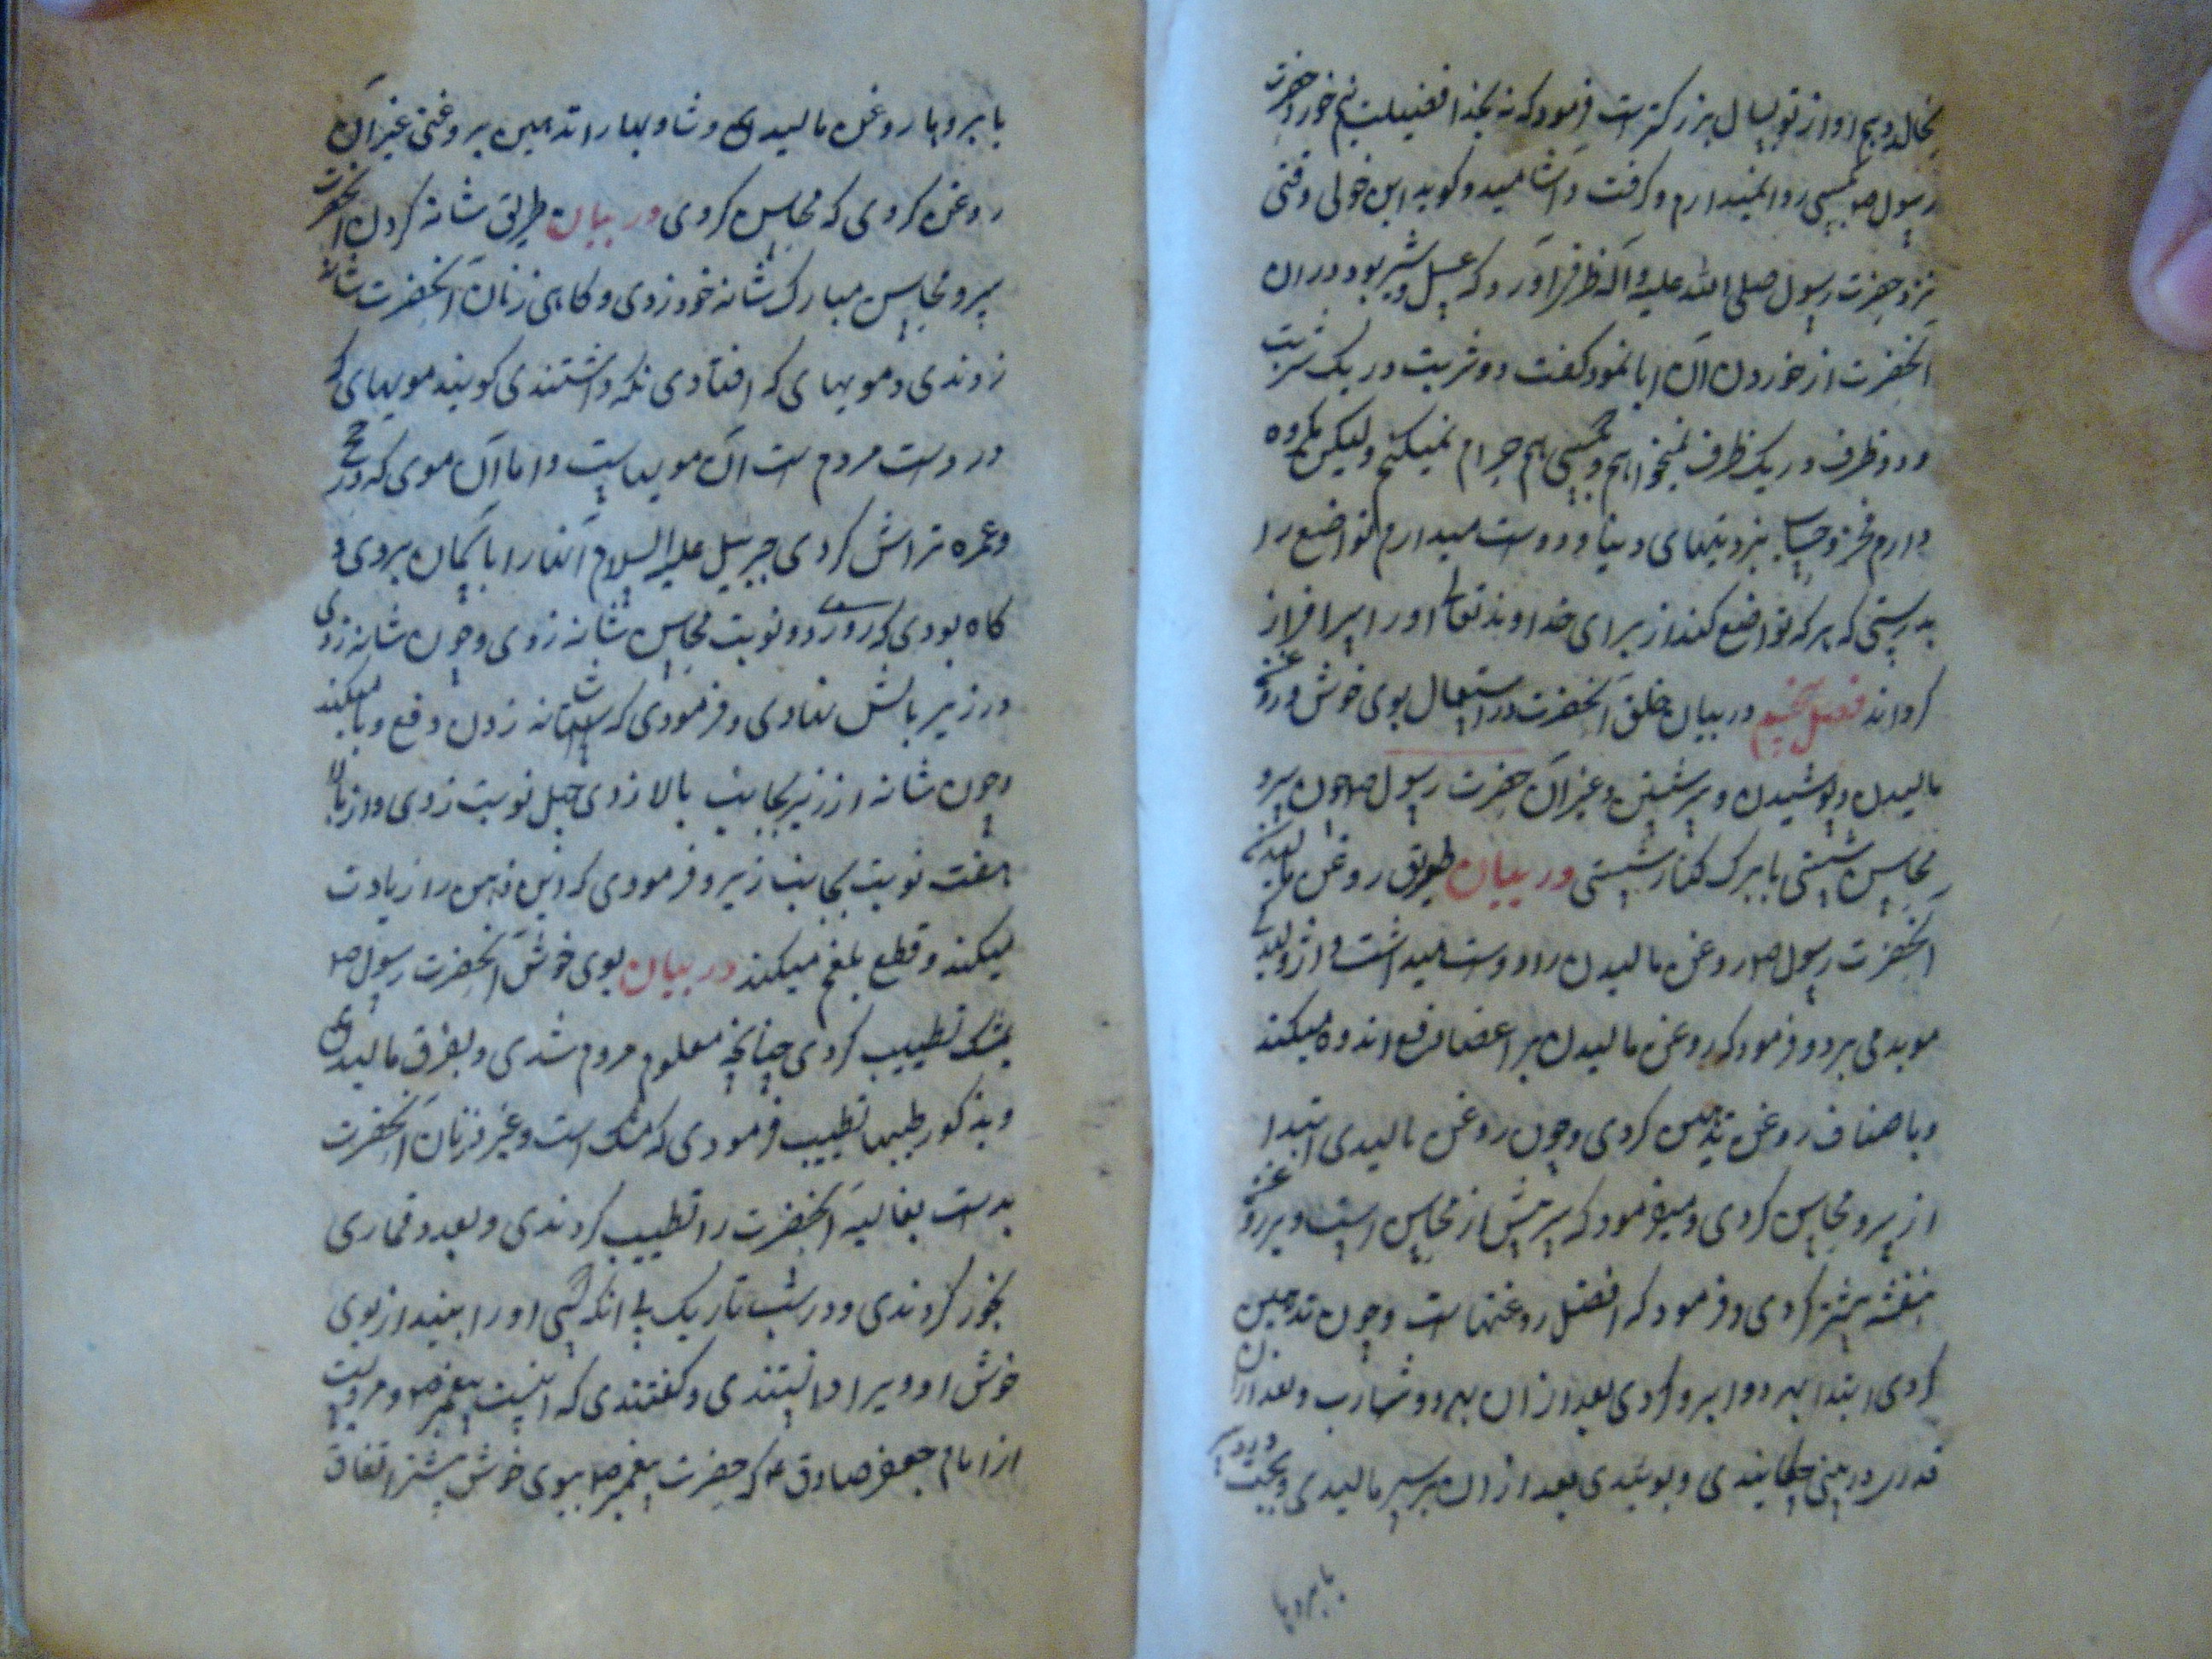 بخال او هم او از تو بسال بزرگتر است فرمود که نه بخدا فضیلت نیم خورد حضرت
رسول ص بکسی روا نمیدارم و گرفت و آشامید و گوید ابن خولی وقتی
نزد حضرت رسول صلی الله علیه و آله ظرفی آورد که عسل و شیر بود در ان
آنحضرت از خوردن آن ابا نمود گفت دو شربت در یک شربت
و دو ظرف در یک ظرف نمیخواهم و بکسی هم حرام نمیکنم ولیکن مکروه
دارم فخر و حساب بزینتهای دنیا و دوست میدارم تواضع را
بدرستی که هر که تواضع کند از برای خداوند تعالی او را سرافراز
گرداند فصل پنجم در بیان خلق آنحضرت در استعمال بوی خوش و روغن
مالیدن و پوشیدن و سر شستن و غیر آن حضرت رسول ص چون سر و
محاسن شستی با برگ کنار شستی در بیان طریق روغن مالیدن
آنحضرت رسول ص روغن مالیدن را دوست میداشت و از ژولیدگی
مو بد می برد و فرمود که روغن مالیدن بر اعضا رفع اندوه میکند
و باصناف روغن تدهین کردی و چون روغن مالیدی ابتدا
از سر و محاسن کردی و میفرمود که سر پیش از محاسن است و بر روغن
بنفشه بیشتر کردی و فرمود که افضل روغنهاست و چون تدهین
کردی ابتدا بهر دو ابرو کردی بعد از ان بهر دو شارب و بعد از ان
قدری در بینی چکانیدی و بوئیدی بعد از ان بر سر مالیدی و بجهت درد سر
بابروها
بابروها روغن مالیدی و شاربها را تدهین بروغنی غیر آن
روغن کردی که محاسن کردی در بیان طریق شانه کردن آنحضرت
سر و محاسن مبارک شانه خود زدی و گاهی زنان آنحضرت شانه
زدندی و مویهای که افتادی نگه داشتندی گویند مویهای که
در دست مردم است آن مویهاست و اما آن موی که در حج
و عمره تراش کردی جبرییل علیه السلام آنها را باسمان بردی و
گاه بودی که روزی دو نوبت محاسن شانه زدی و چون شانه زدی
در زیر بالش نهادی و فرمودی که شانه زدن دفع وبا میکند
و چون شانه از زیر بجانب بالا زدی چهل نوبت زدی و از بالا
هفت نوبت بجانب زیر و فرمودی که این ذهن را زیادت
میکند و قطع بلغم میکند در بیان بوی خوش آنحضرت رسول ص
بمشک تطییب کردی چنانچه معلوم مردم شدی و بفرق مالیدی
و بذکور طیبها تطییب فرمودی که مشک است و عنبر و زنان آنحضرت
بدست بغالیه آنحضرت را تطییب کردندی و بعود قماری
بخور کردندی و در شب تاریک بی آنکه کسی او را بیند از بوی
خوش او ویرا دانستندی و گفتندی که اینست پیغمبر ص و مرویست
از امام جعفر صادق ع که حضرت پیغمبر ص ببوی خوش بیشتر انفاق